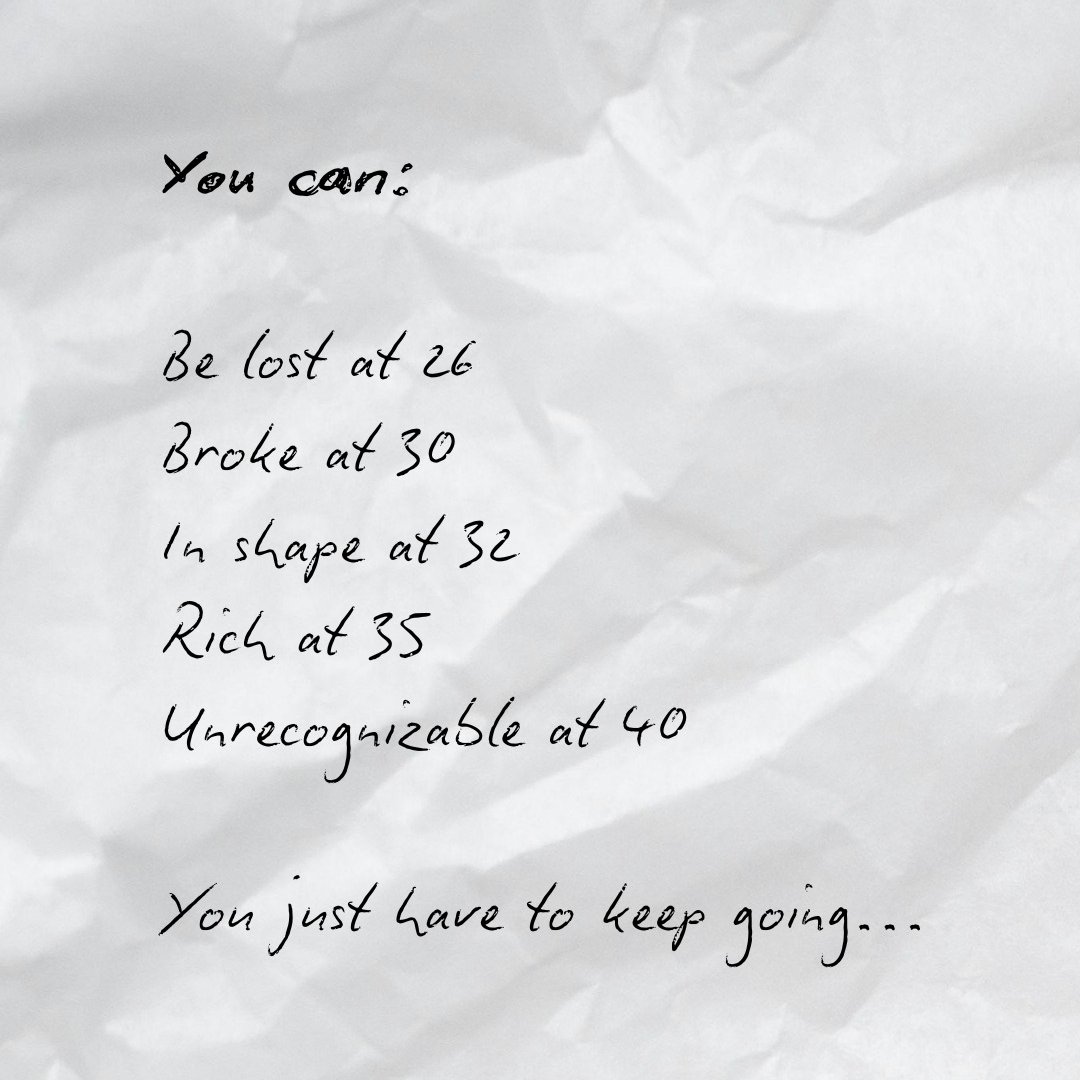 You can:
Be lost at 26
Broke at 30
In shape at 32
Rich at 35
Unrecognizable at 40
You just have to keep going...